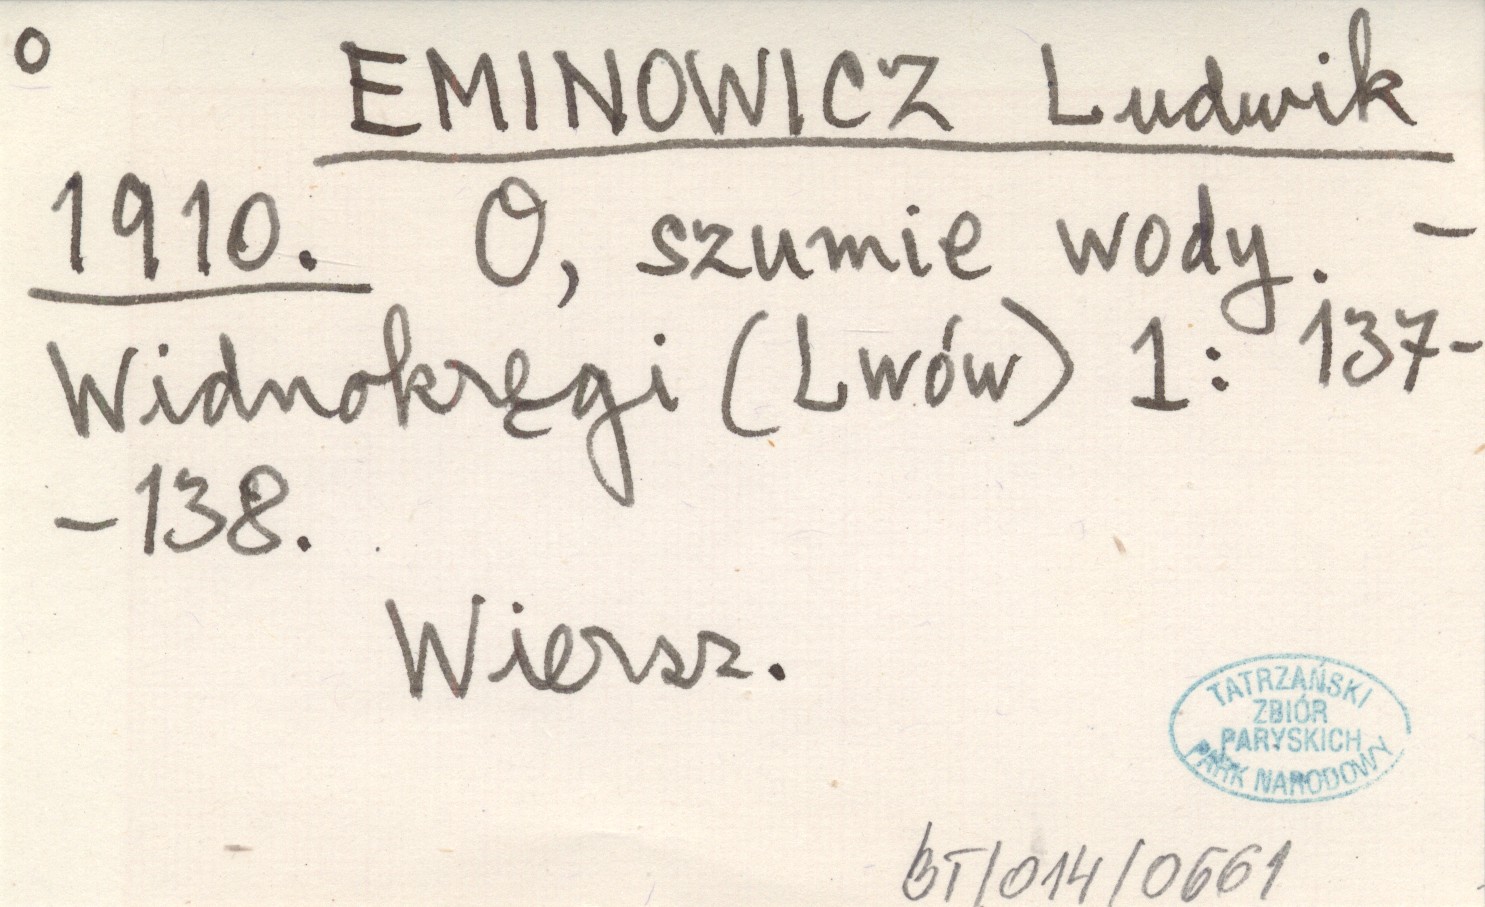 o EMINOWICZ Ludwik
1910. O, szumie wody. -
Widnokręgi (Lwów) 1: 137-
-138.
Wiersz.
TATRZAŃSKI
ZBIÓR
PARYSKICH
PARK NARODOWY
BT/014/0661